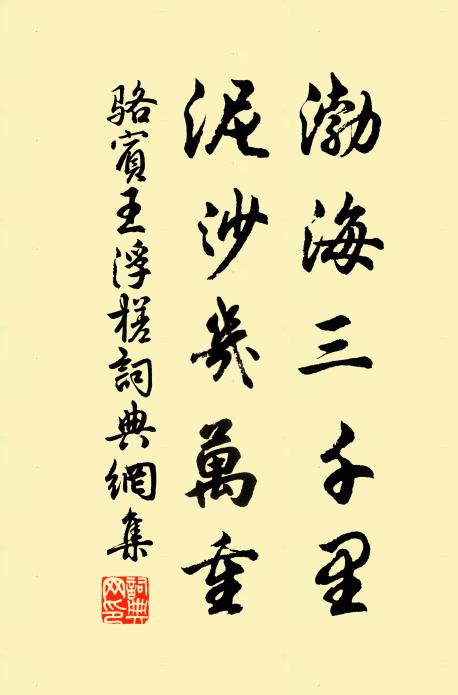 渤海三千里
泥沙幾萬重
駱賓王浮槎詞典網集
詞典网印